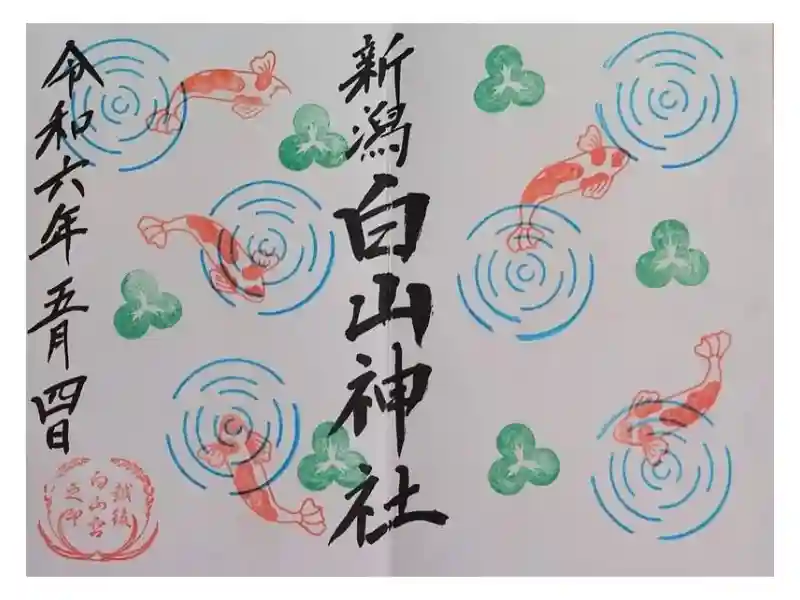 新潟白山神社
令和六年五月四日
越後
白山宮
之印